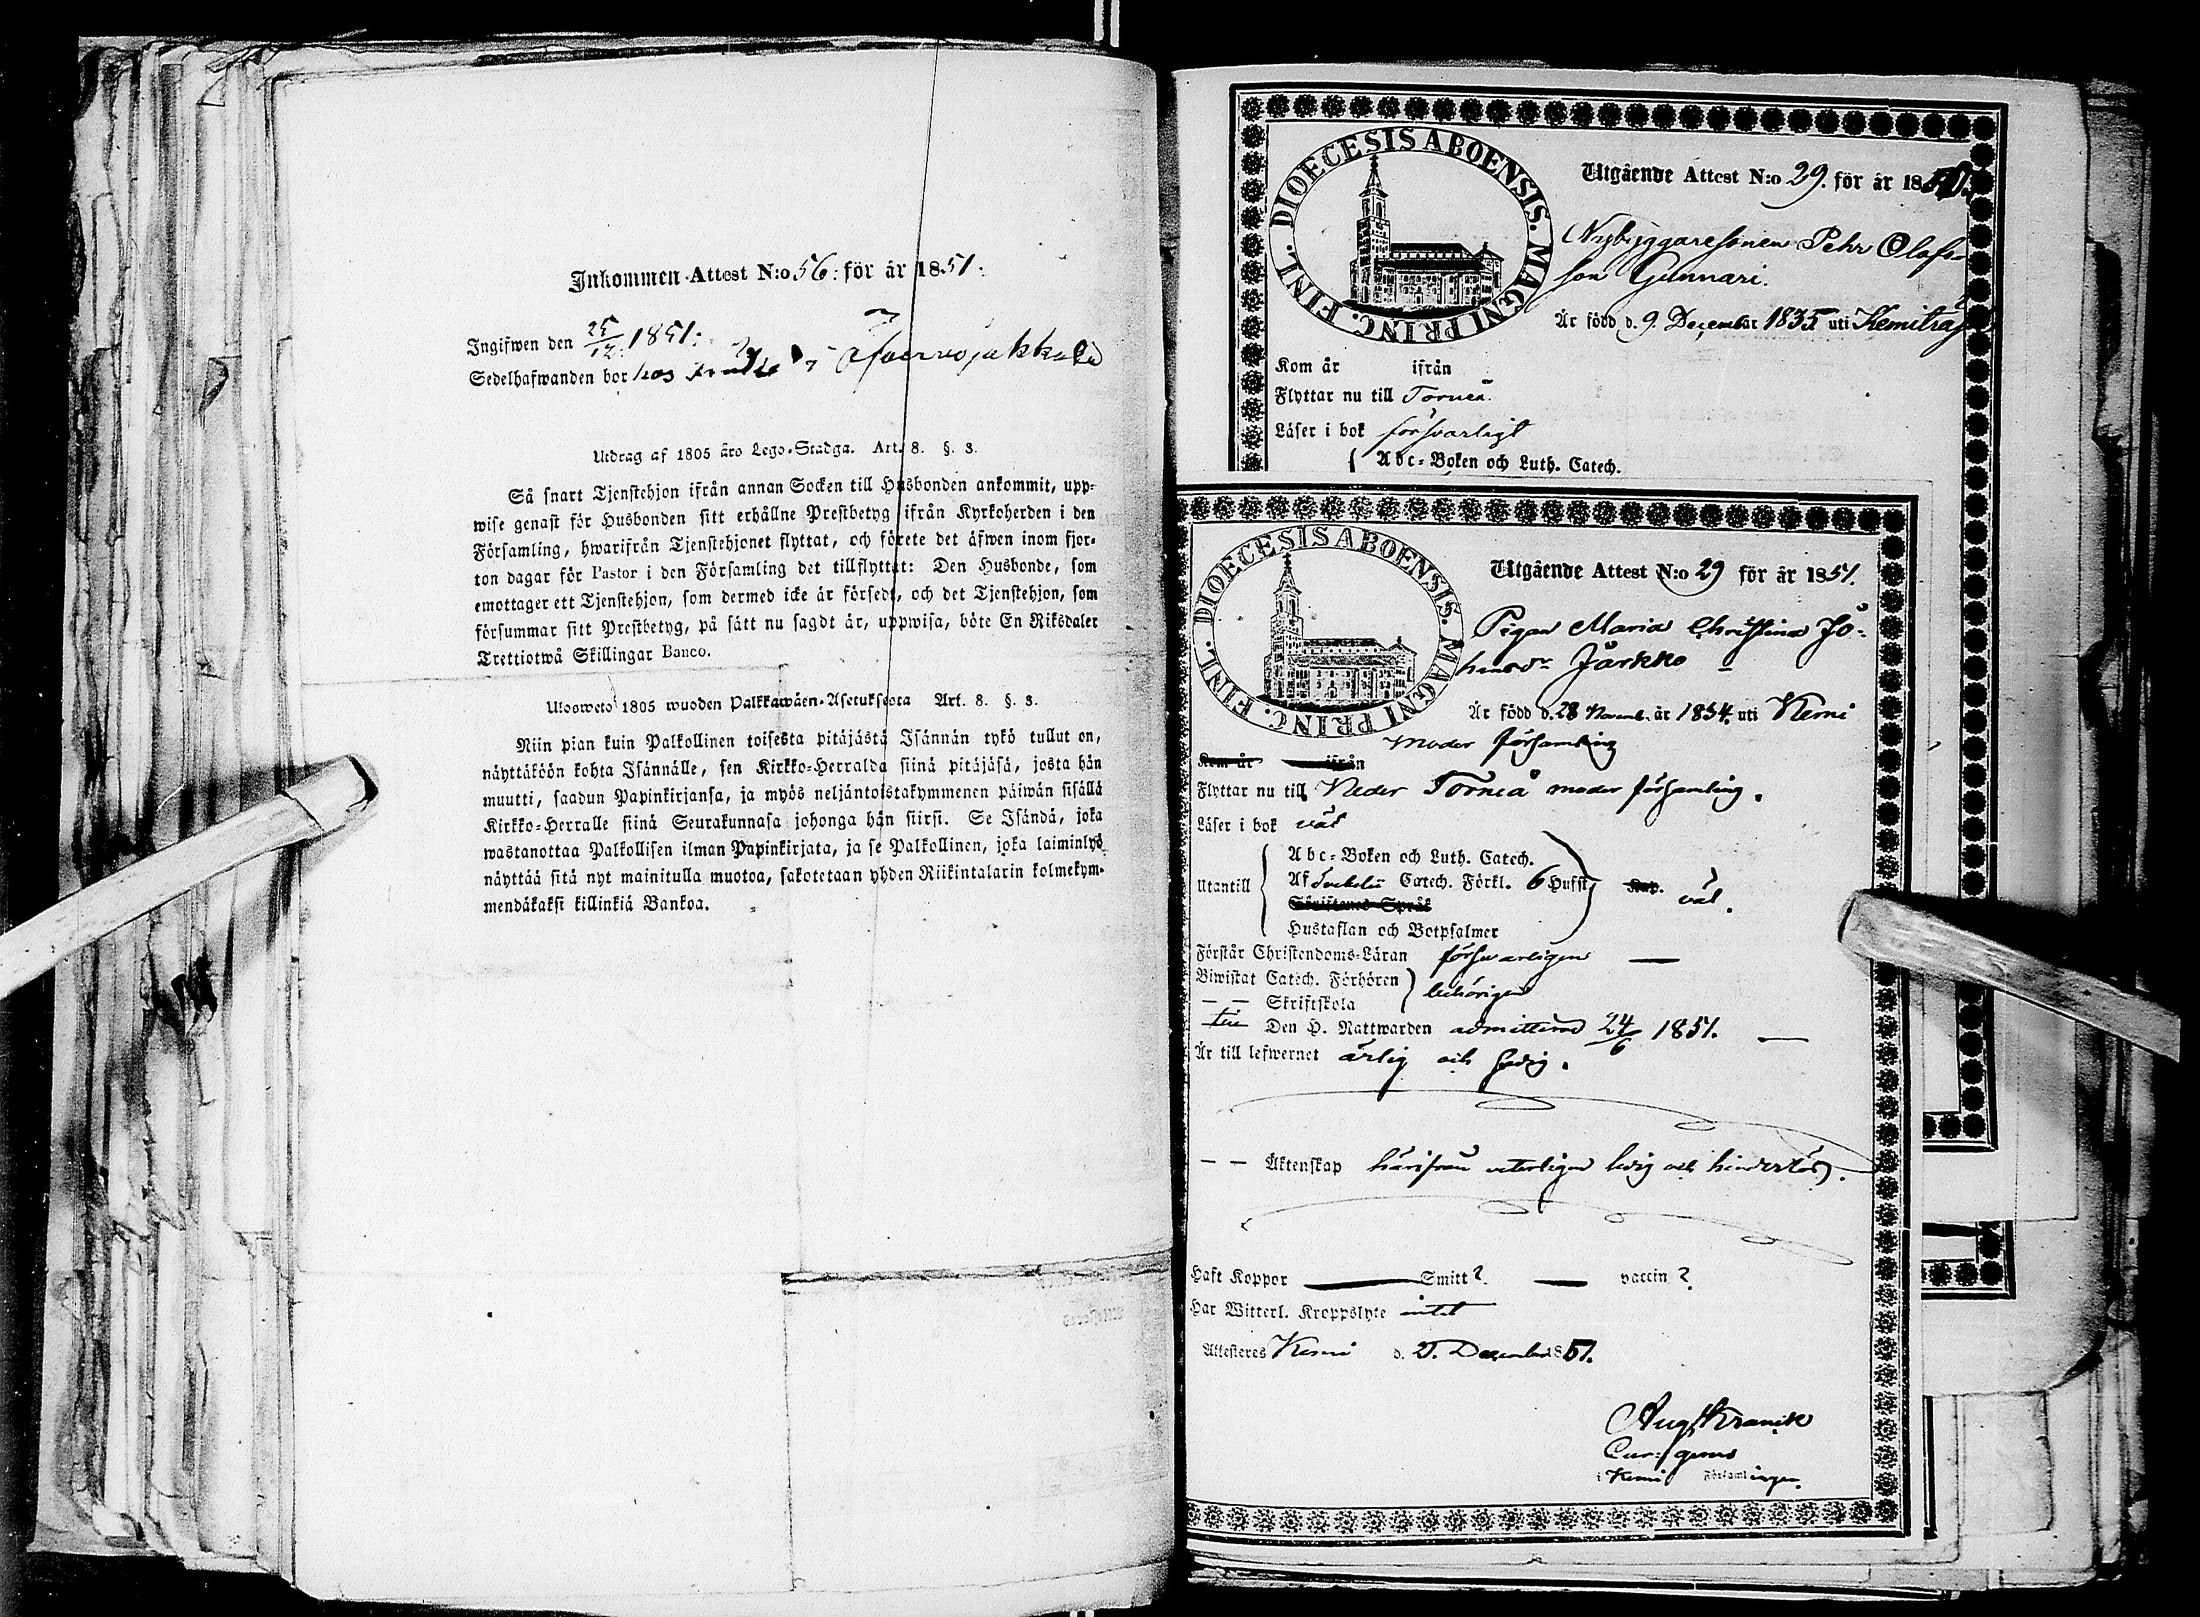 Inkommen Attest N:o 56: för år 1851:
Ingifwen den 25/12: 1851:
Sedelhafwanden bor hos
Utdrag af 1805 års Lego-Stadga. Art. 8. §. 3.
Så snart Tjenstehjon ifrån annan Socken till Husbonden ankommit, upp-
wise genast för Husbonden sitt erhållne Prestbetyg ifrån Kyrkoherden i den
Församling, hwarifrån Tjenstehjonet flyttat, och förete det äfwen inom fjor-
ton dagar för Pastor i den Församling det tillflyttat: Den Husbonde, som
emottager ett Tjenstehjon, som dermed icke är försedt, och det Tjenstehjon, som
försummar sitt Prestbetyg, på sätt nu sagdt är, uppwisa, böte En Riksdaler
Trettiotwå Skillingar Banco.
Ulosweto 1805 wuoden Palkkawäen-Asetuksesta Art. 8. §. 3.
Niin pian kuin Palkollinen toisesta pitäjästä Isännän tykö tullut on,
näyttäköön kohta Isännälle, sen Kirkko-Herralda siinä pitäjäsä, josta hän
muutti, saadun Papinkirjansa, ja myös neljäntoistakymmenen päiwän sisällä
Kirkko-Herralle siinä Seurakunnasa johonga hän siirsi. Se Isändä, joka
wastanottaa Palkollisen ilman Papinkirjata, ja se Palkollinen, joka laiminlyö
näyttää sitä nyt mainitulla muotoa, sakotetaan yhden Riikintalarin kolmekym-
mendäkaksi killinkiä Bankoa.
DIOECESIS ABOENSIS. MAGNI PRINC. FINL.
Utgående Attest N:o 29. för år 1850.
Nybyggaresonen Pehr Olofs-
son Gunnari.
Är född d. 9. December 1835 uti Kemiträsk
Kom år ifrån
Flyttar nu till Torneå.
Läser i bok försvarligt
Abc-Boken och Luth. Catech.
DIOECESIS ABOENSIS. MAGNI PRINC. FINL.
Utgående Attest N:o 29 för år 1851.
Pigan Maria Christina Jo-
hansdr Järkko
Är född d. 28 Novemb. år 1834. uti Kemi
moder församling
Kom år ifrån
Flyttar nu till Neder Torneå moder församling.
Läser i bok väl
Abc-Boken och Luth. Catech.
Utantill Af Svebelii Catech. Förkl. 6 Hufst. Kap. väl.
Skriftenes Språk
Hustaflan och Botpsalmer
Förstår Christendoms-Läran försvarligen
Biwistat Catech. Förhören behörigen
— — Skriftskola
till Den H. Nattwarden admitterad 24/6 1851.
Är till lefwernet ärlig och sedig.
— — Äktenskap härifrån veterligen ledig och hinderlös.
Haft Koppor Smitt? vaccin?
Har Witterl. Kroppslyte intet
Attesteres Kemi d. 21. December 1851.
Aug Kranck
Cur: gerens
i Kemi Församlingar.